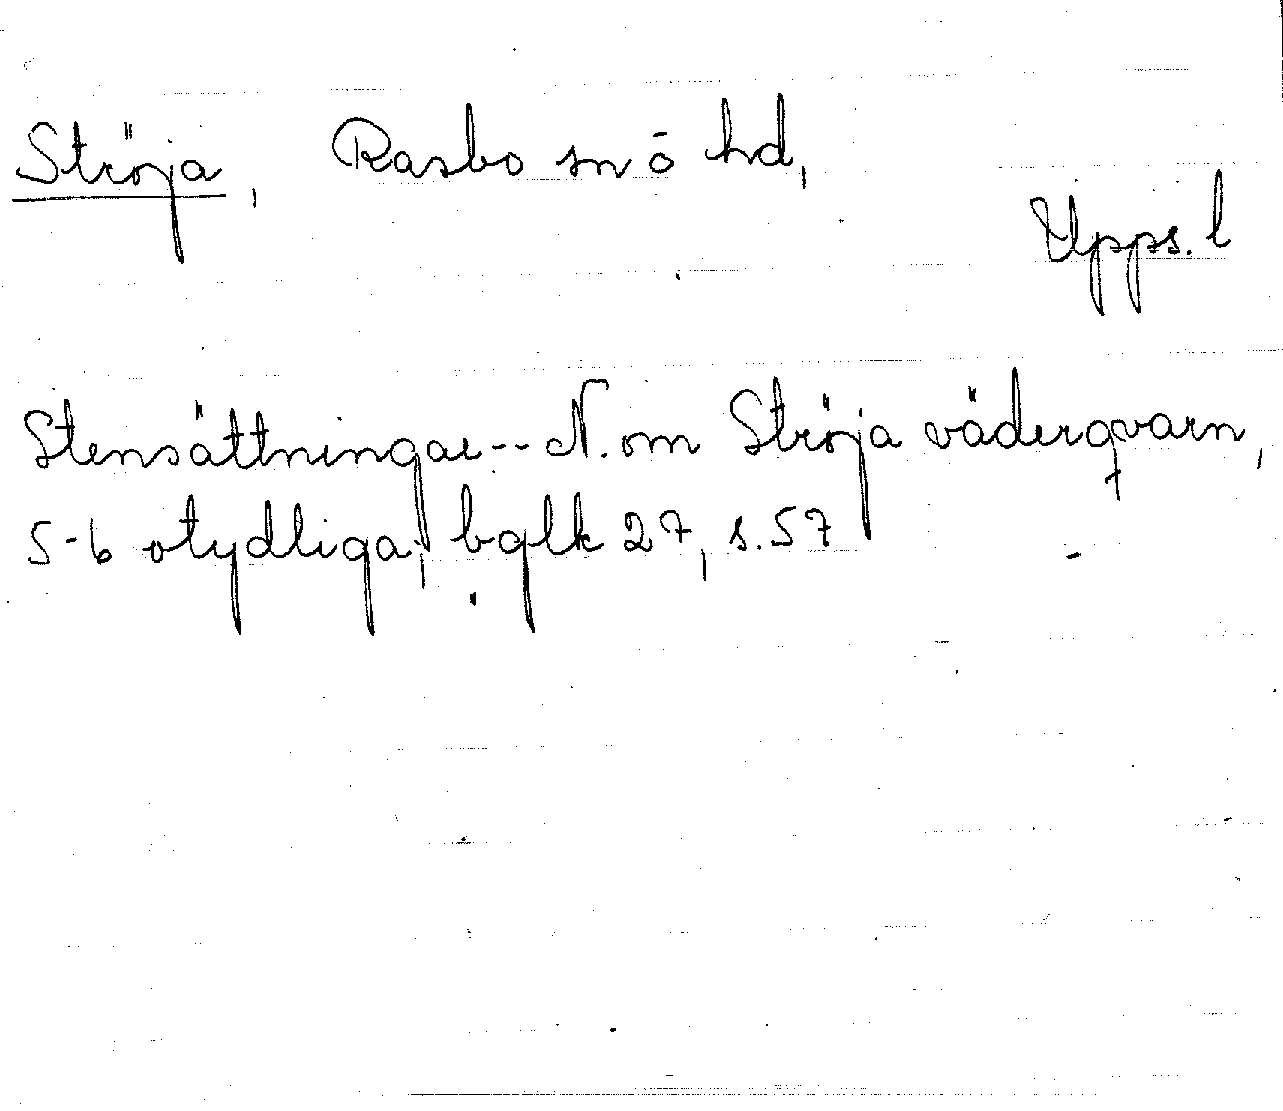 Ströja, Rasbo sn ō hd,
Upps. l
Stensättningar -- N. om Ströja vädergvarn,
5-6 otydliga; bglk 27, s. 57